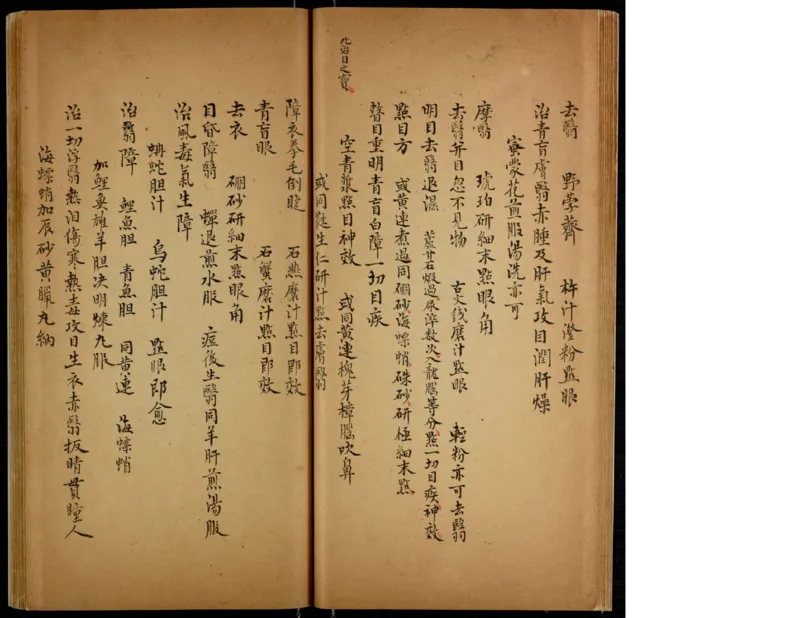 去翳　野荸薺　杵汁澄粉點眼
治青盲膚翳赤腫及肝氣攻目潤肝燥
蜜蒙花煎服湯洗亦可
摩翳　琥珀研細末點眼角
去翳并目忽不見物　古文錢磨汁點眼　輕粉亦可去翳
明目去翳退濕　蘆甘石煅過尿淬數次入龍腦等分點一切目疾神效
點目方　或黃連煮過同硼砂海螵蛸硃砂研極細末點
瞽目重明青盲白障一切目疾
空青漿點目神效　或同黃連槐芽樟腦吹鼻
此治目之寶
或同麩生仁研汁點去膚翳
障衣拳毛倒睫　石燕磨汁點目即效
青盲眼　石蟹磨汁點目即效
去衣　硼砂研細末點眼角
目昏障翳　蟬退煎水服　痘後生翳同羊肝煎湯服
治風毒氣生障
蚺蛇胆汁　烏蛇胆汁　點眼即愈
治翳障　鯉魚胆　青魚胆　同黃連　海螵蛸
加鯉魚雄羊胆决明煉丸服
治一切浮翳熱泪傷寒熱毒攻目生衣赤翳扳睛貫瞳人
海螵蛸加辰砂黃臘丸納